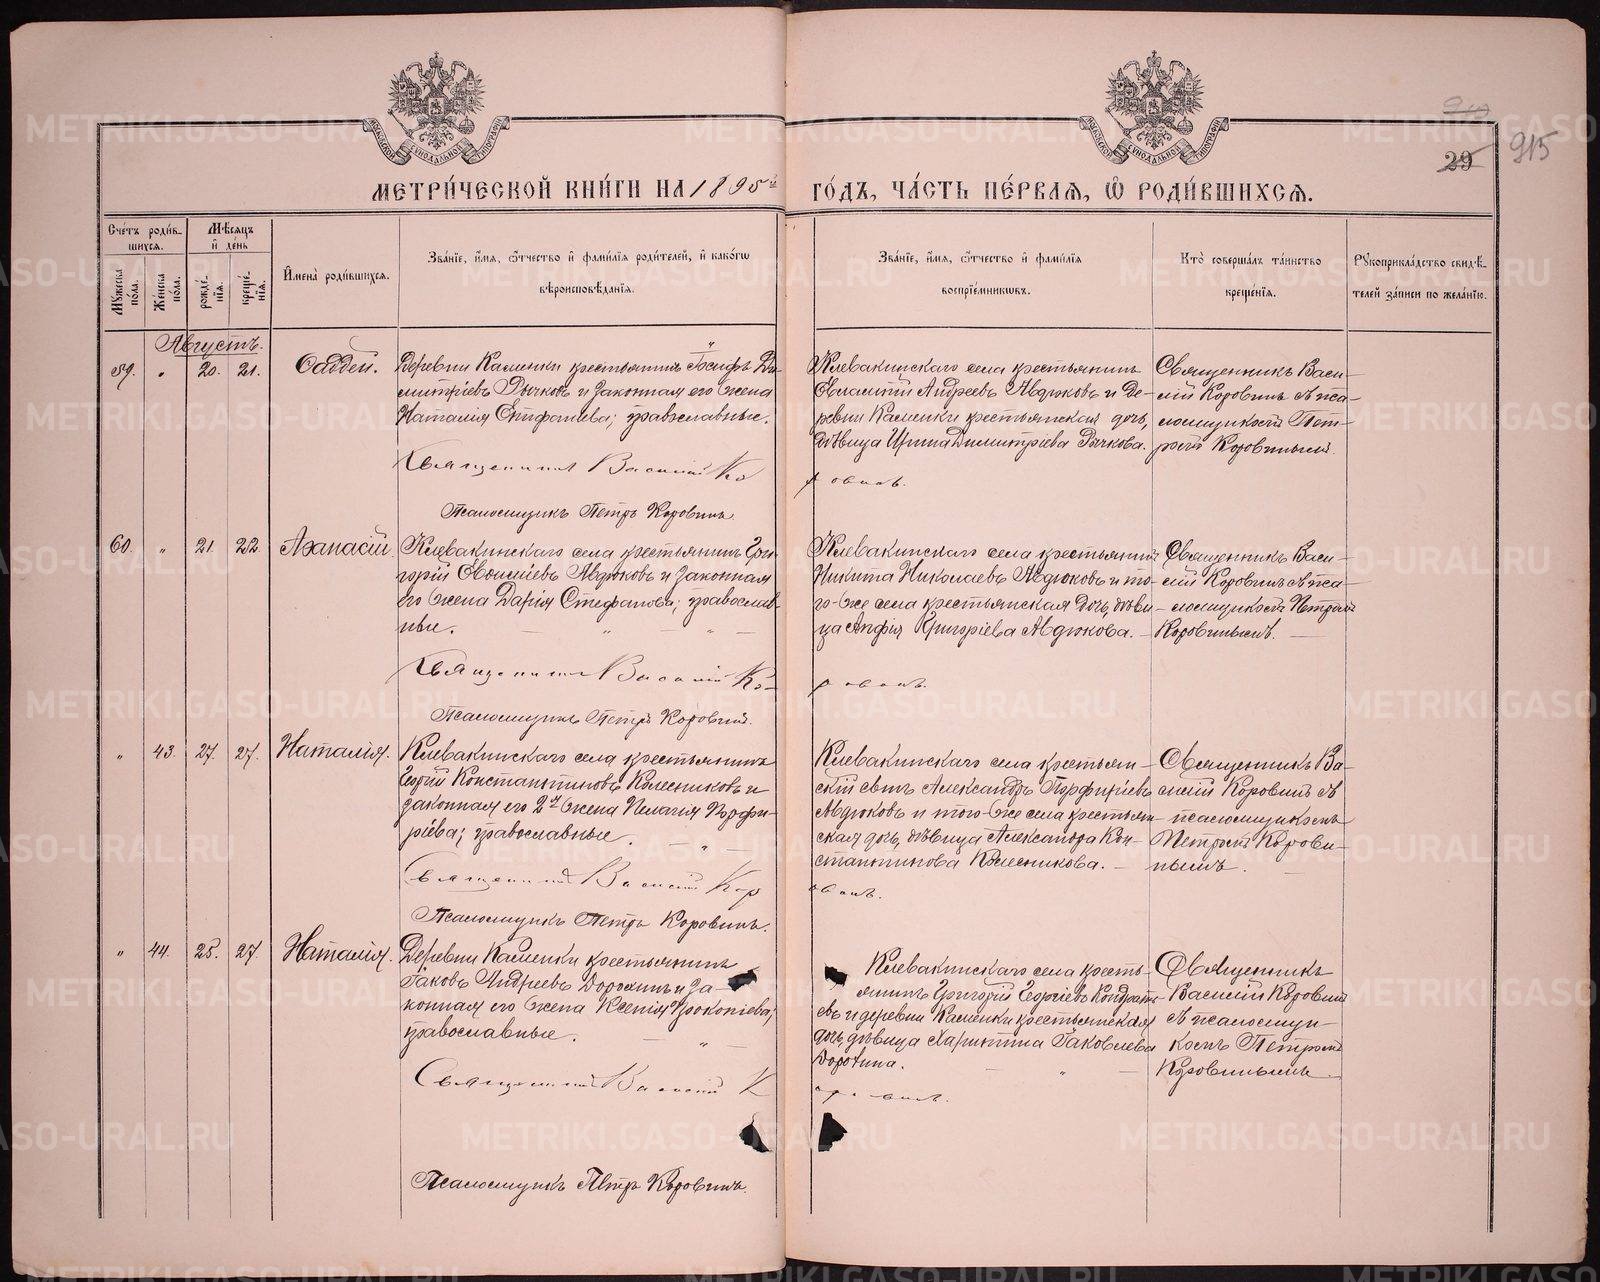 МЕТРИ́ЧЕСКОЙ КНИ́ГИ НА 1895й ГО́ДЪ, ЧА́СТЬ ПЕ́РВАЯ, Ѡ РОДИ́ВШИХСЯ.
29 915
Сче́тъ роди́в-
шихся.
Мѣ́сяцъ
и҆ де́нь
Мꙋ́жеска по́ла.
Же́нска по́ла.
рожде́-
нїѧ.
креще́-
нїѧ.
И҆мена̀ роди́вшихся.
Зва́нїе, и҆́мѧ, ѻ҆́тчество и҆ фами́лїѧ роди́телей, и҆ како́гѡ
вѣроисповѣ́данїѧ.
Зва́нїе, и҆́мѧ, ѻ҆́тчество и҆ фами́лїѧ
воспрїе́мникѡвъ.
Кто̀ соверша́лъ та́инство
креще́нїѧ.
Рꙋкоприкла́дство свидѣ́-
телей за́писи по жела́нїю.
Августъ.
59. „ 20. 21. Ѳаддей.
Деревни Каменки крестьянинъ Іосифъ Ди-
митріевъ Рычковъ и законная его жена
Наталія Стефанова; православные.
Священникъ Василій Ко
Псаломщикъ Петръ Коровинъ.
Клевакинскаго села крестьянинъ
Евлампій Андреевъ Авдюковъ и де-
ревни Каменки крестьянская дочь,
дѣвица Ирина Димитріева Рычкова.
ровинъ.
Священникъ Васи-
лій Коровинъ съ пса-
ломщикомъ Пет-
ромъ Коровинымъ.
60. „ 21. 22. Аѳанасій.
Клевакинскаго села крестьянинъ Гри-
горій Евѳиміевъ Авдюковъ и законная
его жена Дарія Стефанова; православ-
ные. — „ —
Священникъ Василій Ко-
Псаломщикъ Петръ Коровинъ.
Клевакинскаго села крестьянинъ
Никита Николаевъ Авдюковъ и то-
го-же села крестьянская дочь, дѣви-
ца Анфія Григоріева Авдюкова. —
ровинъ.
Священникъ Васи-
лій Коровинъ съ пса-
ломщикомъ Петромъ
Коровинымъ. —
„ 43. 27. 27. Наталія.
Клевакинскаго села крестьянинъ
Георгій Константиновъ Колесниковъ и
законная его 2я жена Пелагія Порфи-
ріева; православные. — „ —
Священникъ Василій Кор
Псаломщикъ Петръ Коровинъ.
Клевакинскаго села крестьян-
скій сынъ Александръ Порфиріевъ
Авдюковъ и того-же села крестьян-
ская дочь, дѣвица Александра Кон-
стантинова Колесникова. —
овинъ.
Священникъ Ва-
силій Коровинъ съ
псаломщикомъ
Петромъ Корови-
нымъ. —
„ 44. 25. 27. Наталія.
Деревни Каменки крестьянинъ
Іаковъ Андреевъ Доронинъ и за-
конная его жена Ксенія Прокопіева;
православные. — „ —
Священникъ Василій К
Псаломщикъ Петръ Коровинъ.
Клевакинскаго села кресть-
янинъ Григорій Георгіевъ Кондрать-
евъ и деревни Каменки крестьянская
дочь, дѣвица Харитина Іаковлева
Доронина. — „ —
оровинъ.
Священникъ
Василій Коровинъ
съ псаломщи-
комъ Петромъ
Коровинымъ.